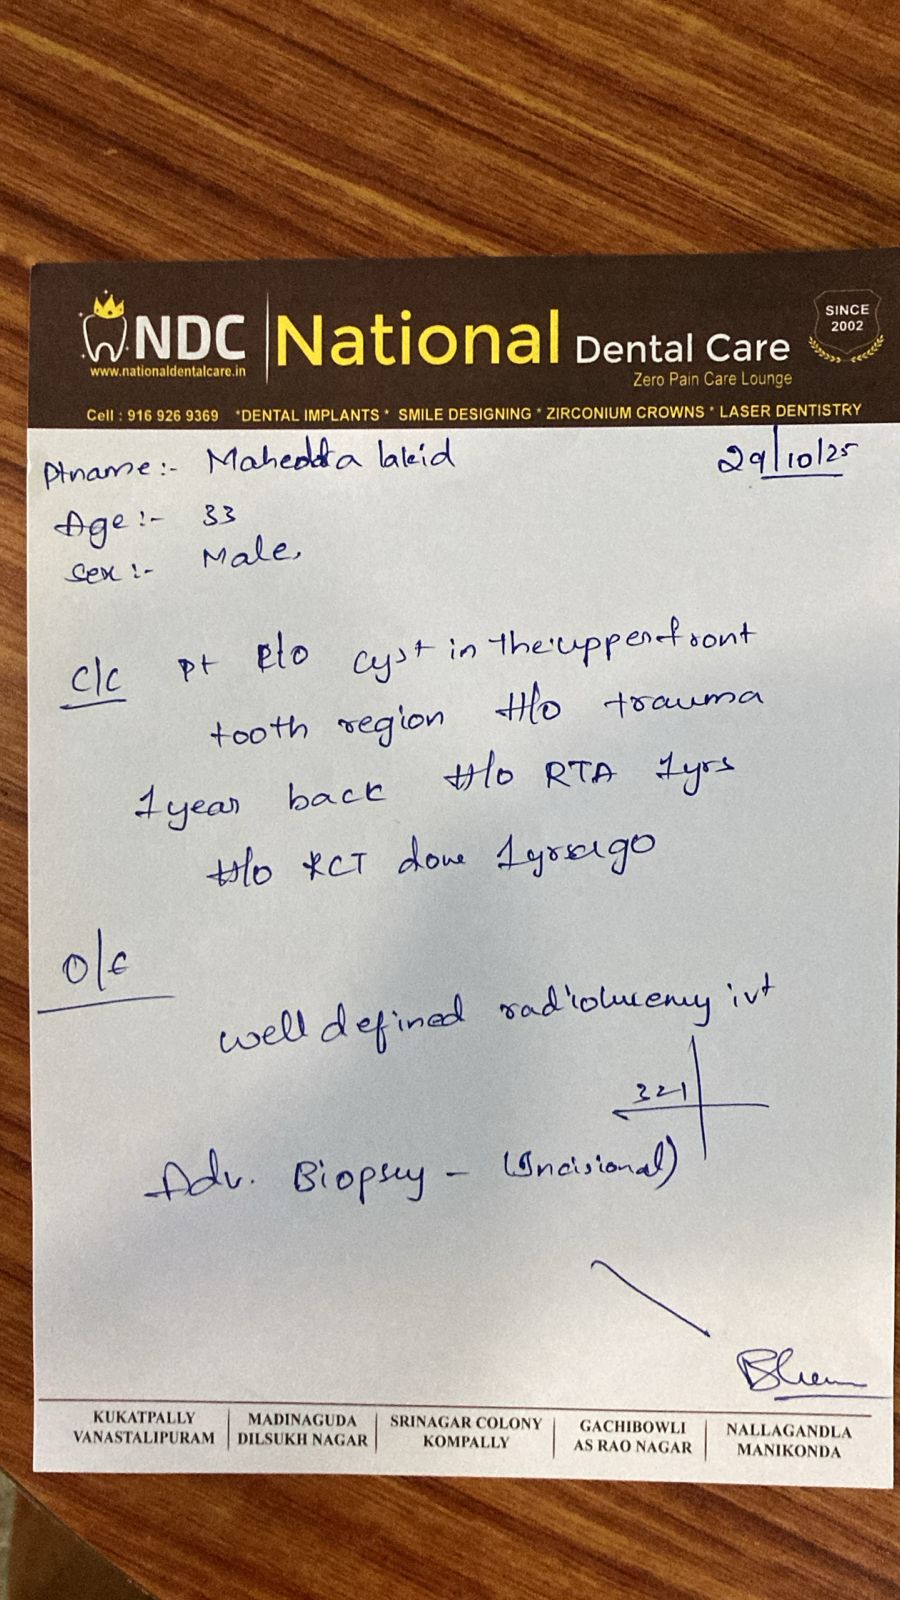 NDC
www.nationaldentalcare.in
National Dental Care
Zero Pain Care Lounge
SINCE
2002
Cell : 916 926 9369 *DENTAL IMPLANTS * SMILE DESIGNING * ZIRCONIUM CROWNS * LASER DENTISTRY
Ptname:-
29/10/25
Age :- 33
Sex :- Male,
C/C pt cyst in the upper front
tooth region H/o trauma
1 year back H/o RTA 1yrs
H/o RCT done 1yrs ago
O/E
well defined irt
321
Adv. Biopsy - (Incisional)
KUKATPALLY
VANASTALIPURAM
MADINAGUDA
DILSUKH NAGAR
SRINAGAR COLONY
KOMPALLY
GACHIBOWLI
AS RAO NAGAR
NALLAGANDLA
MANIKONDA